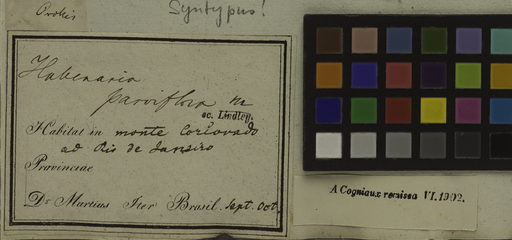 Orchis
Syntypus!
Habenaria
parviflora m
sc. Lindley
Habitat in monte Corcovado
ad Rio de Janeiro
Provinciae
Dr Martius Iter Brasil. Sept. Oct.
A Cogniaux remissa VI.1902.